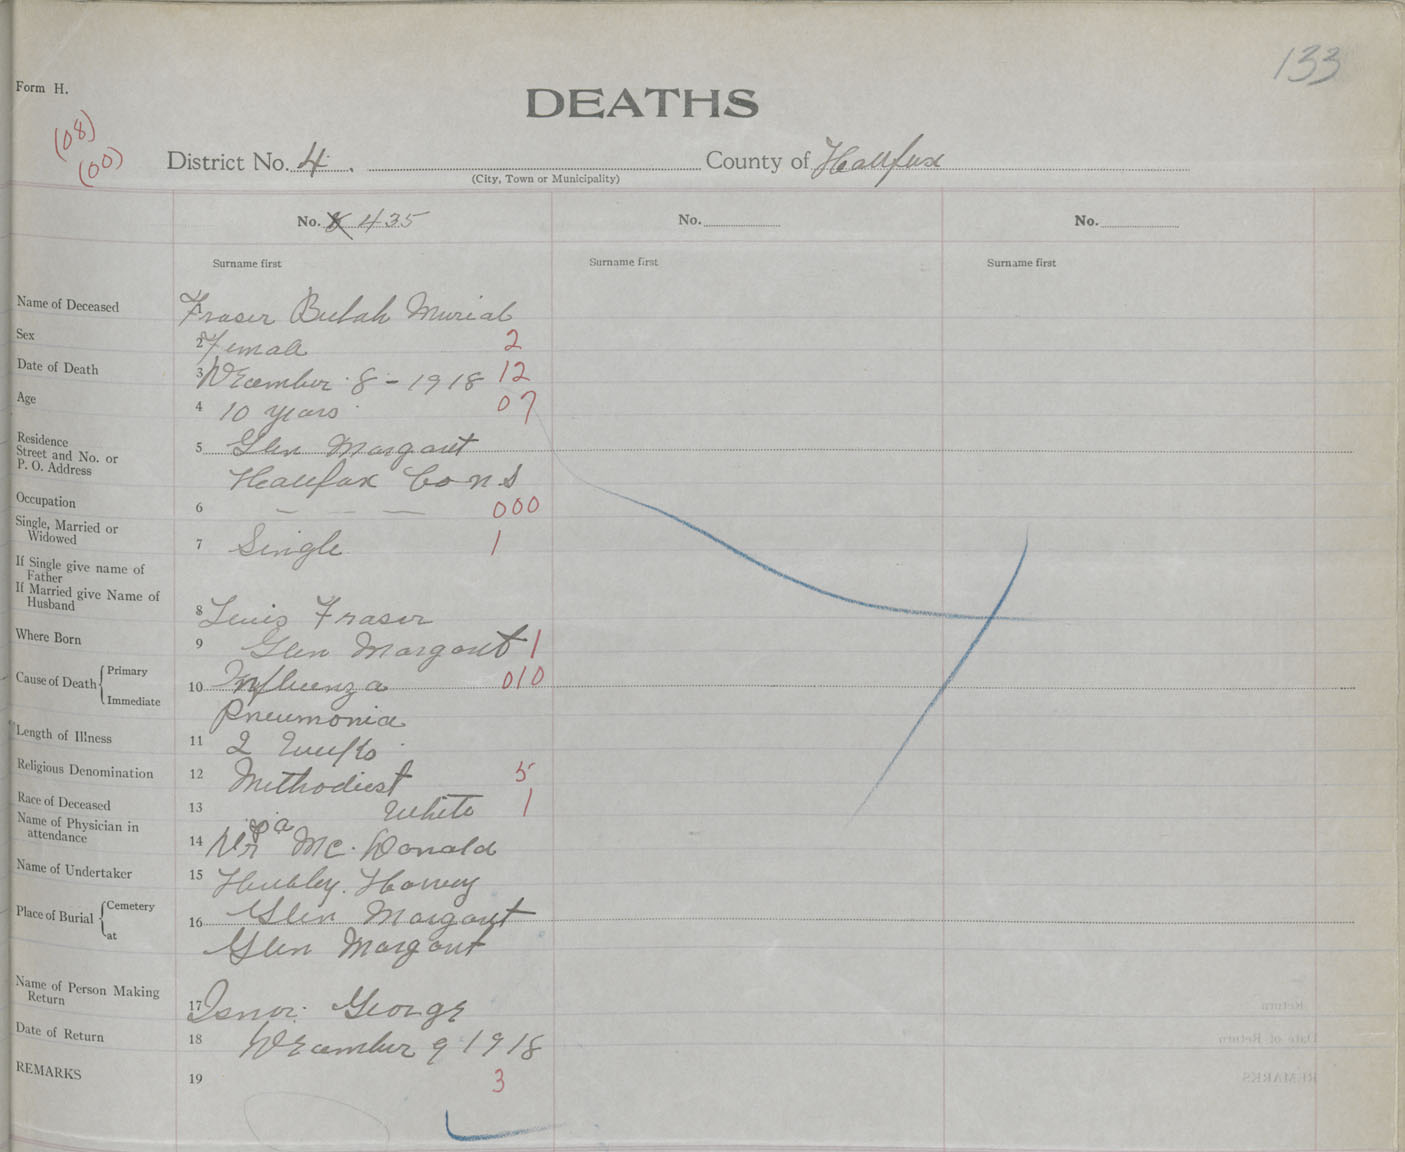 133
Form H.
DEATHS
(08)
(00)
District No. 4. County of Halifax
(City, Town or Municipality)
No. 435 No. No.
Surname first Surname first Surname first
Name of Deceased 1 Fraser Bulah Murial
Sex 2 Female 2
Date of Death 3 December 8 - 1918 12
Age 4 10 years 07
Residence
Street and No. or
P. O. Address 5 Glen Margaret
Halifax Co N S
Occupation 6 — — — 000
Single, Married or
Widowed 7 Single 1
If Single give name of
Father
If Married give Name of
Husband 8 Lewis Fraser
Where Born 9 Glen Margaret 1
Cause of Death { Primary 10 Influenza 010
Immediate Pneumonia
Length of Illness 11 2 Weeks
Religious Denomination 12 Methodist 5
Race of Deceased 13 White 1
Name of Physician in
attendance 14 Dr Mc. Donald
Name of Undertaker 15 Hubley. Harvey
Place of Burial { Cemetery 16 Glen Margaret
at Glen Margaret
Name of Person Making
Return 17 Isnor. George
Date of Return 18 December 9 1918
REMARKS 19 3
Return
Date of Return
REMARKS